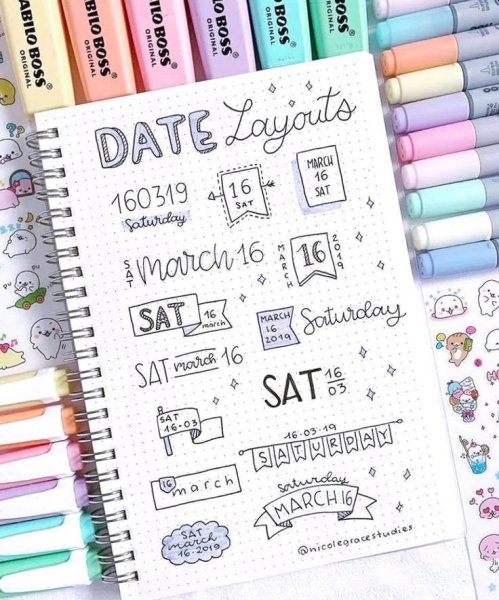 STABILO BOSS
ORIGINAL
STABILO BOSS
ORIGINAL
STABILO BOSS
ORIGINAL
BOSS
ORIGINAL
BOSS
ORIGINAL
DATE Layouts
160319
Saturday
16
SAT
MARCH
16
SAT
SAT
march 16
MARCH
16
2019
SAT
16
march
MARCH
16
2019
Saturday
SAT march 16
SAT
16
03
SAT
16-03
16-03-19
SATURDAY
16
march
Saturday
MARCH 16
SAT
march
16-2019
@nicolegracestudies